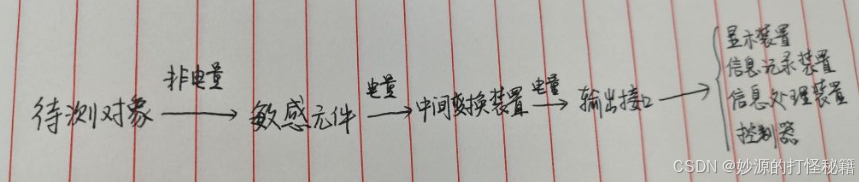 待测对象 非电量 → 敏感元件 电量 → 中间变换装置 电量 → 输出接口 → {
显示装置
信息记录装置
信息处理装置
控制器
CSDN @妙源的打怪秘籍